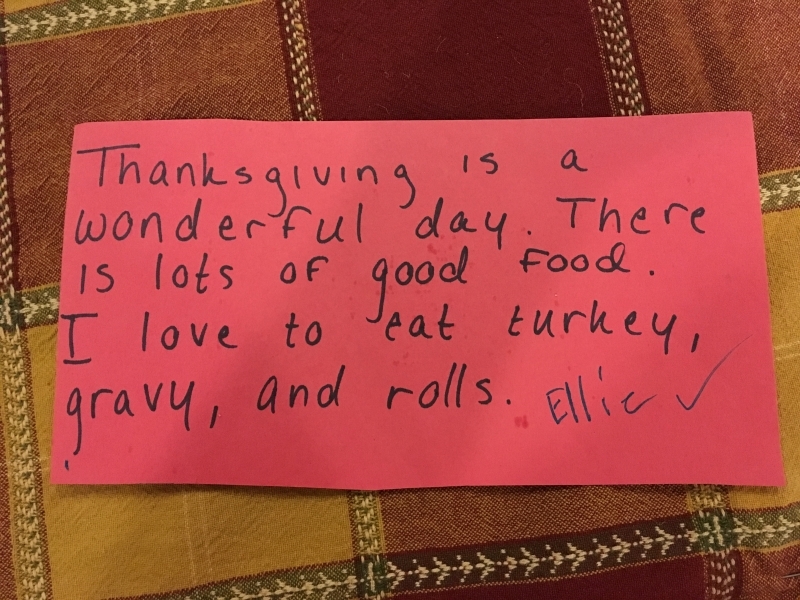 Thanksgiving is a
wonderful day. There
is lots of good food.
I love to eat turkey,
gravy, and rolls. Ellie ✓